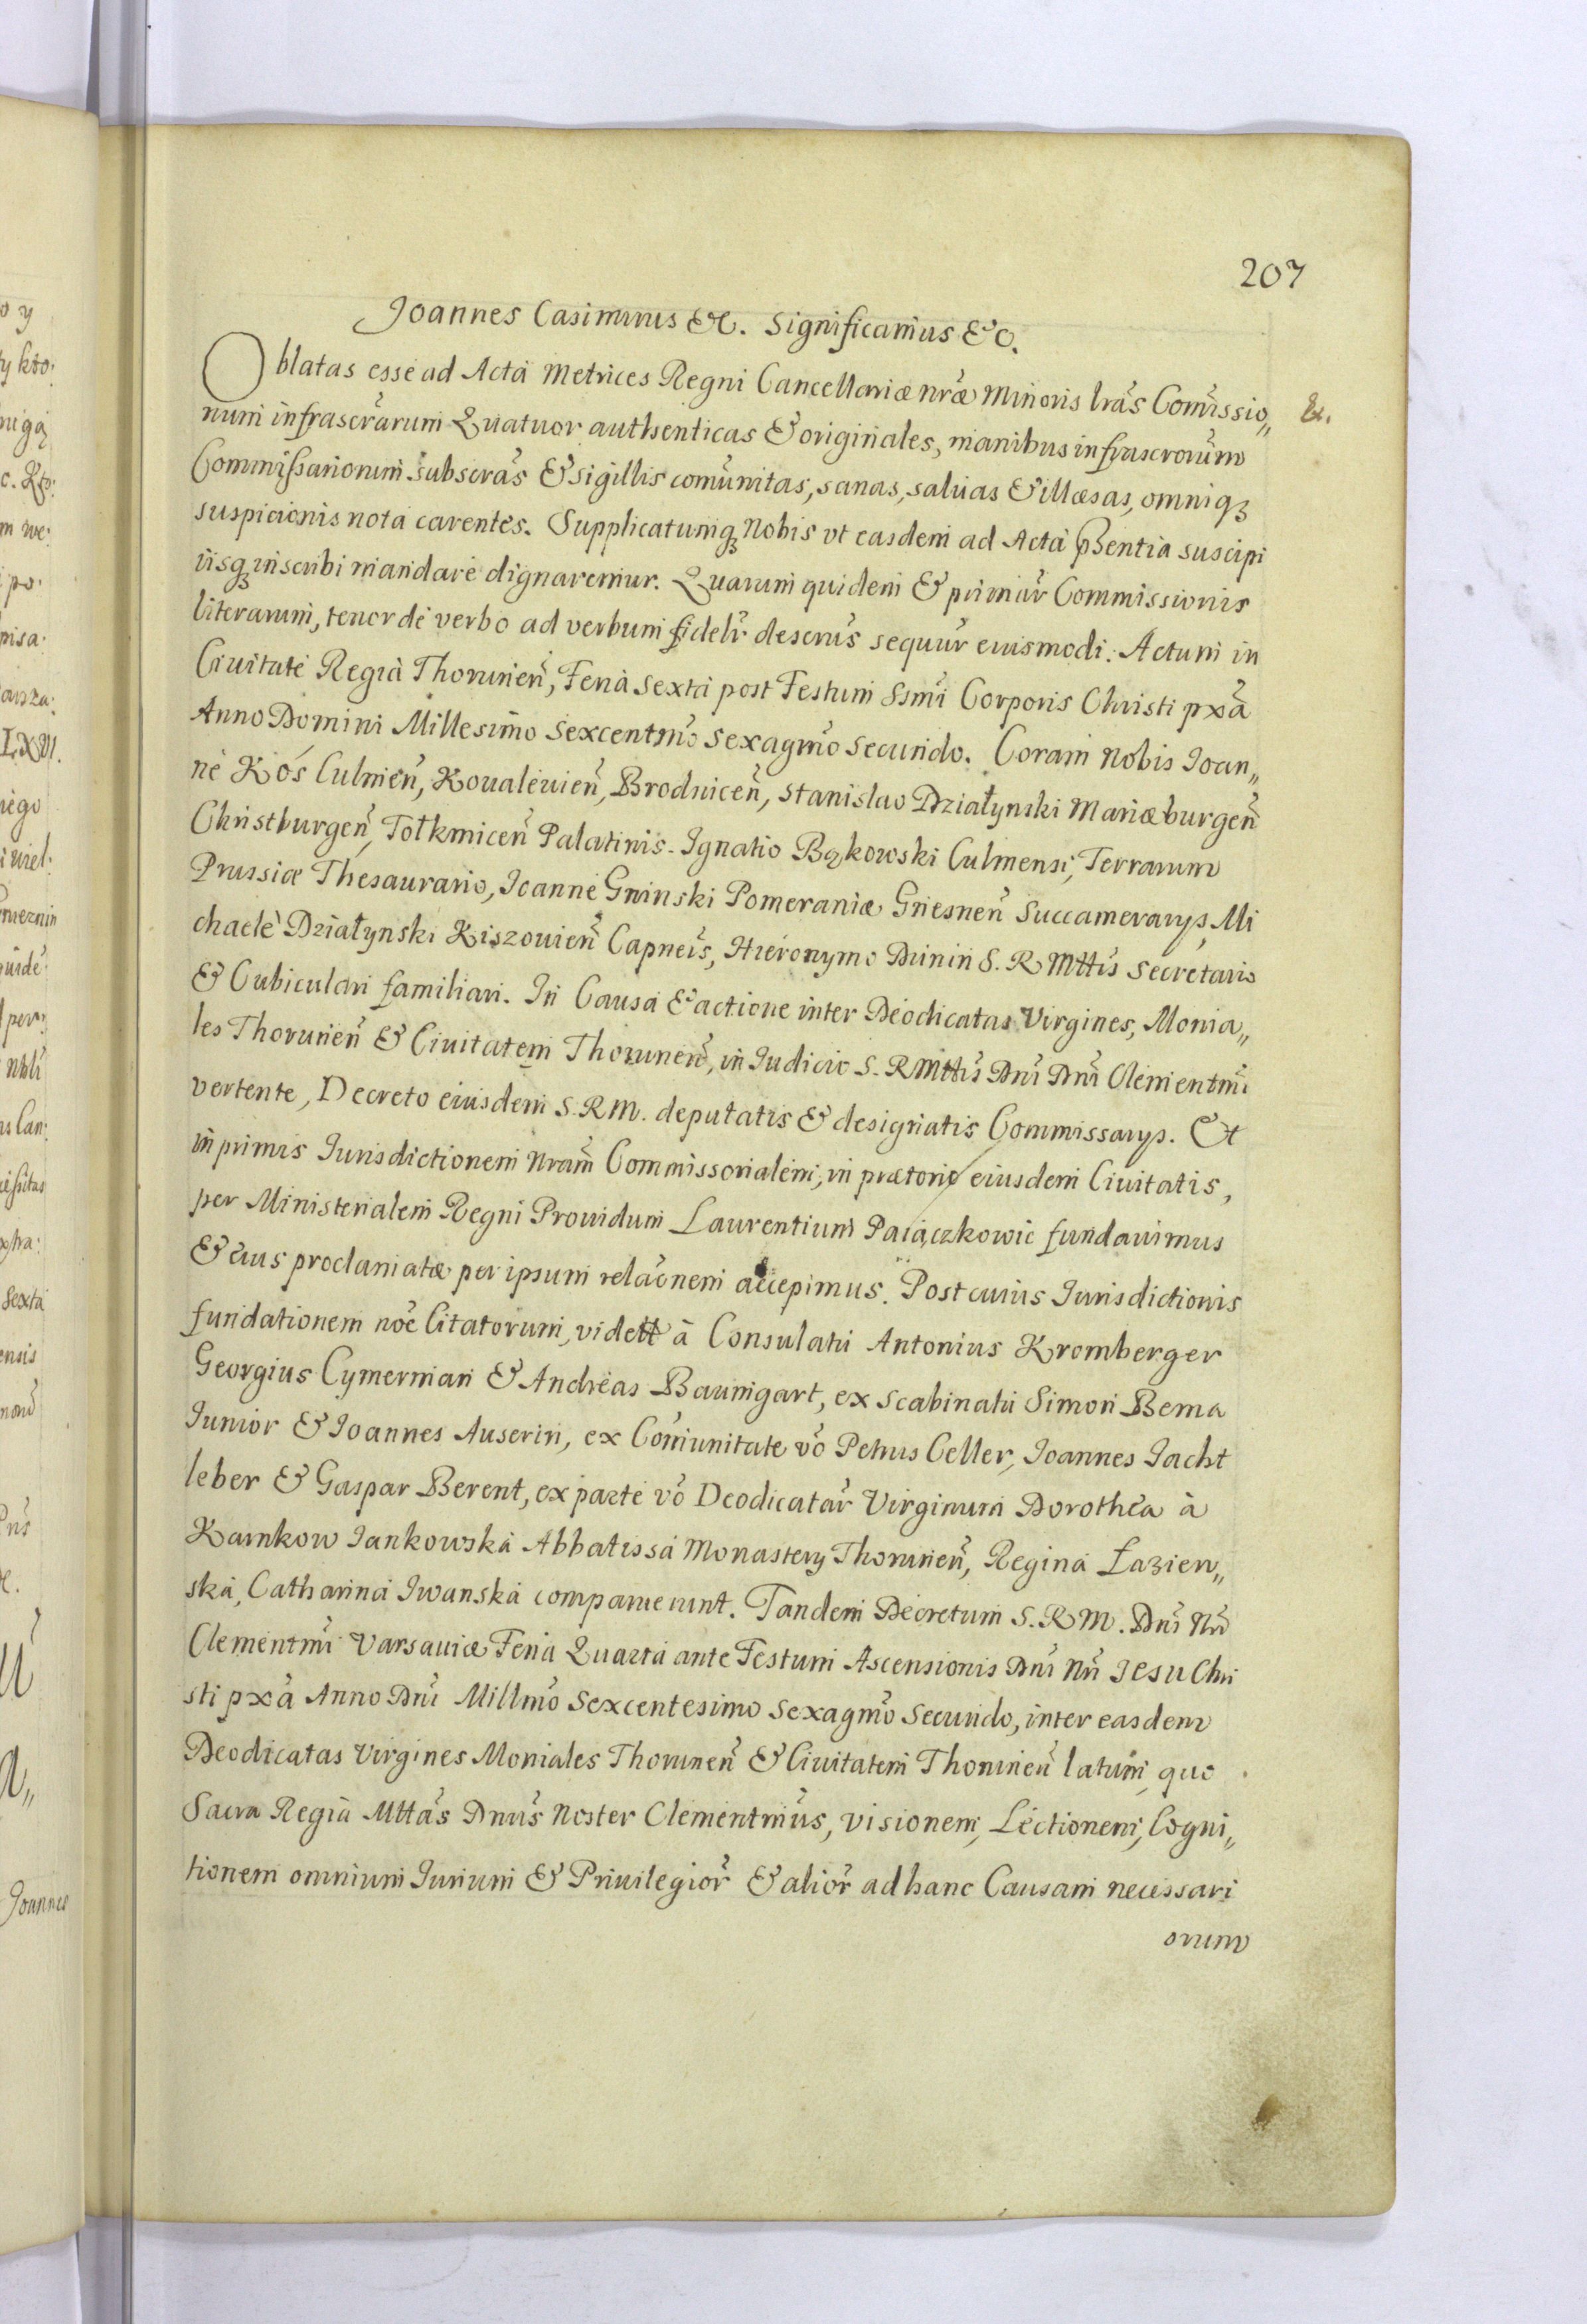 207
Joannes Casimirus &c. Significamus &c.
Oblatas esse ad Acta Metrices Regni Cancellariæ nræ Minoris lrãs Comissio„ &.
num infrascrãrum Quatuor authenticas & originales, manibus infrascrorũm
Commissariorum subscrãs & sigillis comũnitas, sanas, salvas & illæsas, omniq3
suspicionis nota carentes. Supplicatumq3 Nobis vt easdem ad Acta pñtia suscipi
iisq3 inscribi mandare dignaremur. Quarum quidem & primar̃ Commissionis
literarum, tenor de verbo ad verbum fidelr̃ descrũs sequur̃ eiusmodi. Actum in
Civitate Regia Thorunieñ, Feria Sexta post Festum Ssmĩ Corporis Christi pxã
Anno Domini Millesimo Sexcentmõ Sexagmõ Secundo. Coram Nobis Ioan„
ne Kos Culmeñ, Kovalevieñ, Brodniceñ, Stanislao Działynski Mariæburgeñ
Christburgeñ, Tolkmiceñ Palatinis. Ignatio Bąkowski Culmensi, Terrarum
Prussiæ Thesaurario, Ioanne Gninski Pomeraniæ Gnesneñ Succamerarys, Mi
chaele Działynski Kiszovieñ Capneĩs, Hieronymo Dunin S. R Mttĩs Secretario
& Cubiculari familiari. In Causa & actione inter Deodicatas Virgines, Monia„
les Thoruneñ & Civitatem Thoruneñ, in Iudicio S. R Mttĩs Dnĩ Dnĩ Clementmĩ
vertente, Decreto eiusdem S. R M. deputatis & designatis Commissarys. Et
inprimis Iurisdictionem Nram̃ Commissorialem, in prætorio eiusdem Civitatis,
per Ministerialem Regni Providum Laurentium Paiączkowic fundavimus
& eius proclamatæ per ipsum relaõnem accepimus. Post cuius Iurisdictionis
fundationem noẽ Citatorum, vidett à Consulatu Antonius Kromberger
Georgius Cymerman & Andreas Baumgart, ex Scabinatu Simon Bema
Iunior & Ioannes Auserin, ex Com̃unitate võ Petrus Celler, Joannes Jacht
leber & Gaspar Berent, ex parte võ Deodicatar̃ Virginum Dorothea à
Karnkow Jankowska Abbatissa Monastery Thoruneñ, Regina Łazien„
ska, Catharina Iwanska comparuerunt. Tandem Decretum S. R M. Dnĩ Nrĩ
Clementmĩ Varsaviæ Feria Quarta ante Festum Ascensionis Dnĩ Nrĩ Jesu Chri
sti pxã Anno Dnĩ Millmõ Sexcentesimo Sexagmõ Secundo, inter easdem
Deodicatas Virgines Moniales Thoruneñ & Civitatem Thoruneñ latum, quo
Sacra Regia Mttãs Dnũs Noster Clementmũs, visionem, Lectionem, Cogni„
tionem omnium Iurium & Privilegior̃ & alior̃ ad hanc Causam necessari
orum